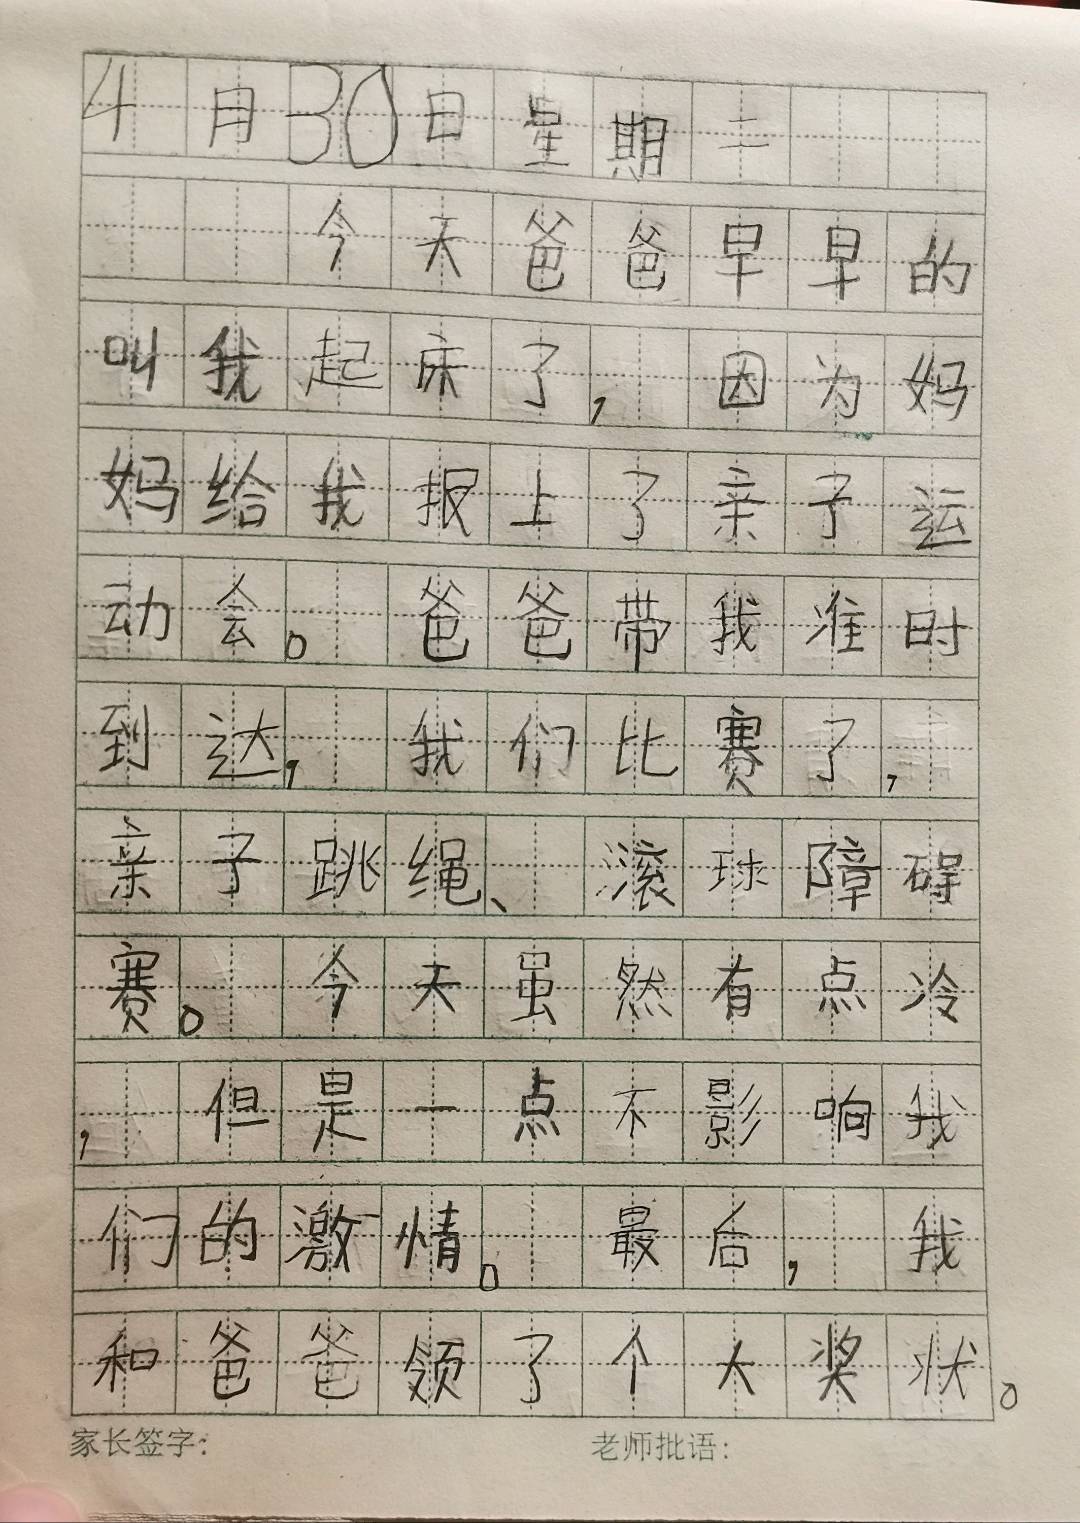 4月30日星期二
今天爸爸早早的
叫我起床了，因为妈
妈给我报上了亲子运
动会。爸爸带我准时
到达，我们比赛了，
亲子跳绳、滚球障碍
赛。今天虽然有点冷
，但是一点不影响我
们的激情。最后，我
和爸爸领了个大奖状。
家长签字： 老师批语：